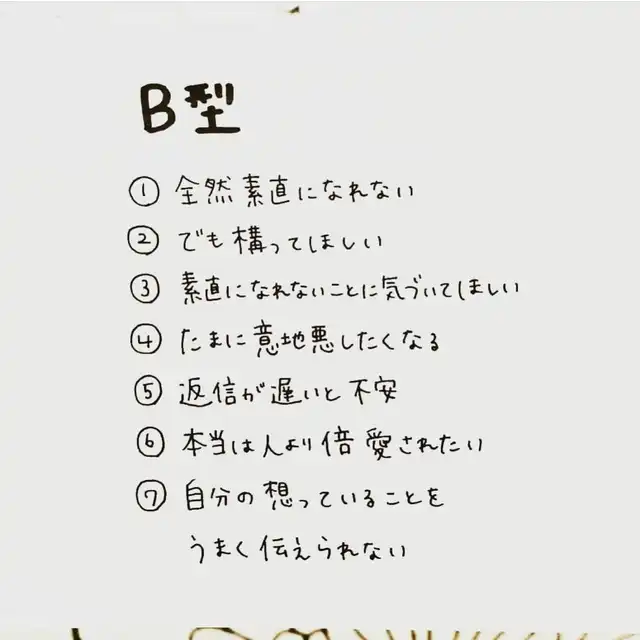 B型
① 全然素直になれない
② でも構ってほしい
③ 素直になれないことに気づいてほしい
④ たまに意地悪したくなる
⑤ 返信が遅いと不安
⑥ 本当は人より倍愛されたい
⑦ 自分の想っていることを
うまく伝えられない